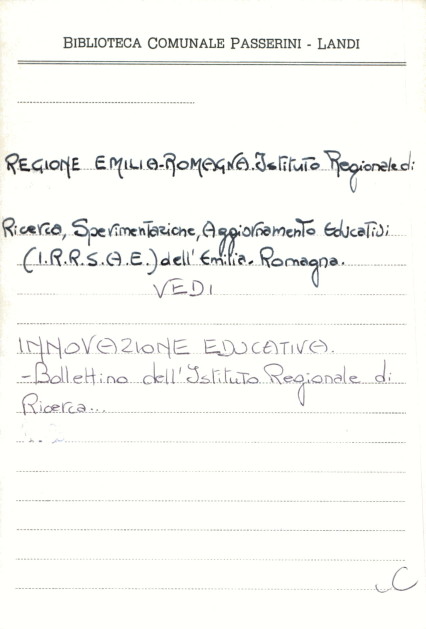 BIBLIOTECA COMUNALE PASSERINI - LANDI
REGIONE EMILIA-ROMAGNA. Istituto Regionale di
Ricerca, Sperimentazione, Aggiornamento Educativi
(I.R.R.S.A.E.) dell'Emilia-Romagna.
VEDI
INNOVAZIONE EDUCATIVA.
-Bollettino dell'Istituto Regionale di
Ricerca...